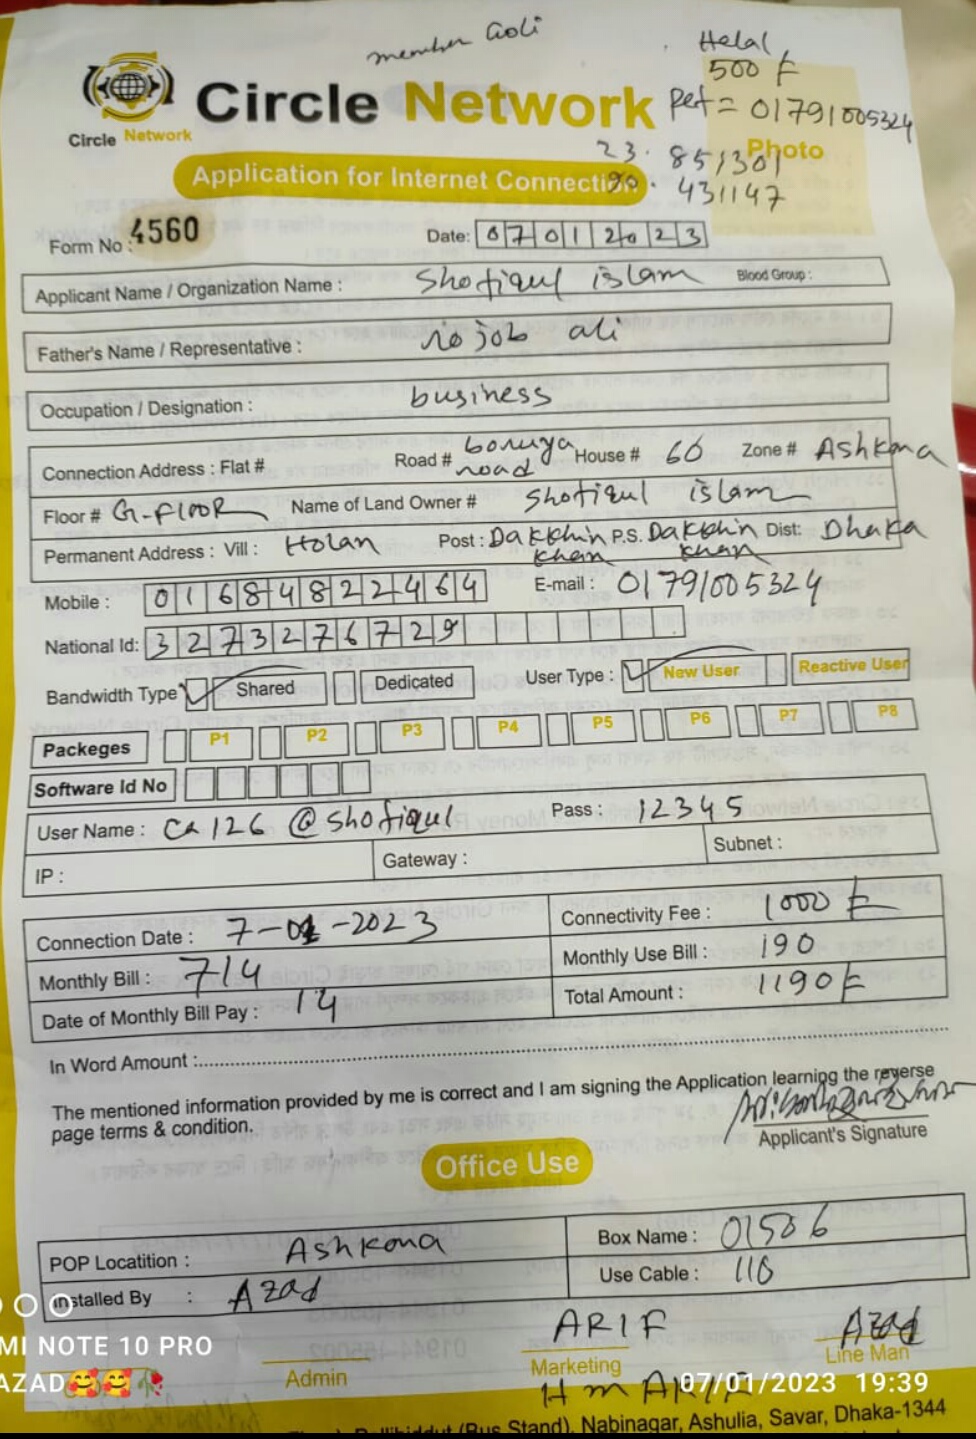 member Goli
Helal
500 ৳
Ref = 01791005324
Circle Network
Circle Network
Photo
23.851301
90.431147
Application for Internet Connection
Form No : 4560
Date: 07012023
Applicant Name / Organization Name : Shofiqul islam Blood Group :
Father's Name / Representative : ali
Occupation / Designation : business
Connection Address : Flat # Road # boruya road House # 60 Zone # Ashkona
Floor # G-FlooR Name of Land Owner # Shofiqul islam
Permanent Address : Vill : Holan Post : Dakkhin khan P.S. Dakkhin khan Dist: Dhaka
Mobile : 01684822464 E-mail : 01791005324
National Id: 3273276729
Bandwidth Type Shared Dedicated User Type : New User Reactive User
Packeges P1 P2 P3 P4 P5 P6 P7 P8
Software Id No
User Name : Ca126 @ Shofiqul Pass : 12345
IP : Gateway : Subnet :
Connection Date : 7-01-2023 Connectivity Fee : 1000 ৳
Monthly Bill : 714 Monthly Use Bill : 190
Date of Monthly Bill Pay : 14 Total Amount : 1190 ৳
In Word Amount :
The mentioned information provided by me is correct and I am signing the Application learning the reverse
page terms & condition.
Applicant's Signature
Office Use
POP Locatition : Ashkona Box Name : 01506
Installed By : Azad Use Cable : 110
ARIF Azad
Admin Marketing Line Man
MI NOTE 10 PRO
AZAD🥰🥰🥀
07/01/2023 19:39
H m ARIF
(Bus Stand), Nabinagar, Ashulia, Savar, Dhaka-1344